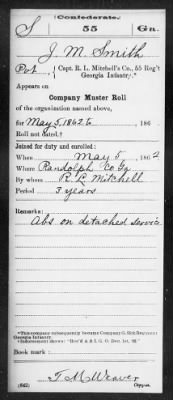 (Confederate.)
S 55 Ga.
J. M. Smith
Pvt, Capt. R. L. Mitchell's Co., 55 Reg't
Georgia Infantry.*
Appears on
Company Muster Roll
of the organization named above,
for May 5, 1862 to 186
Roll not dated.†
Joined for duty and enrolled:
When May 5, 1862
Where Randolph Co Ga
By whom R L Mitchell
Period 3 years
Remarks:
Abs on detached service
*This company subsequently became Company G, 55th Regiment
Georgia Infantry.
Book mark:
T. M. Weaver
(642) Copyist.